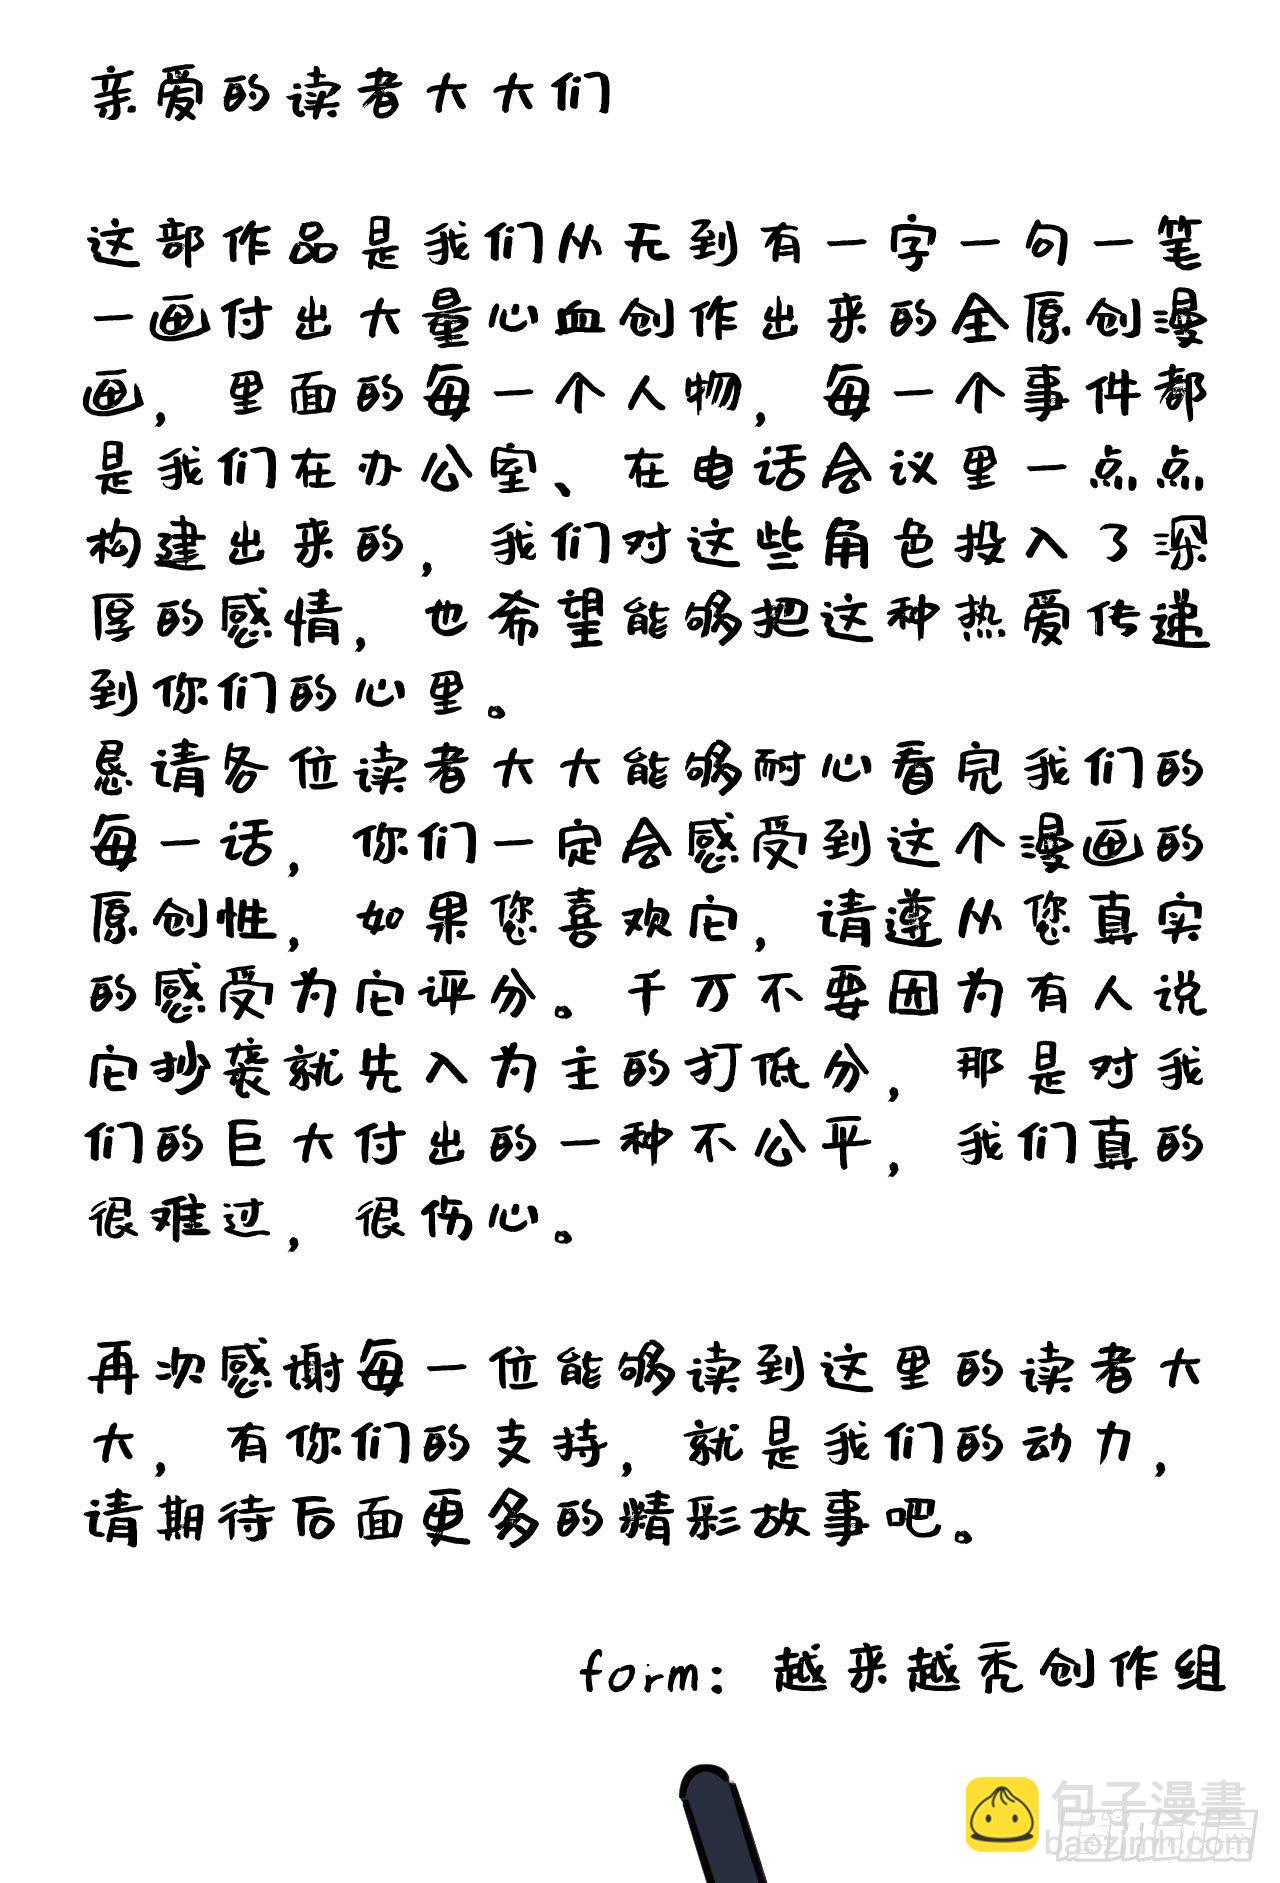 亲爱的读者大大们
这部作品是我们从无到有一字一句一笔
一画付出大量心血创作出来的全原创漫
画，里面的每一个人物，每一个事件都
是我们在办公室、在电话会议里一点点
构建出来的，我们对这些角色投入了深
厚的感情，也希望能够把这种热爱传递
到你们的心里。
恳请各位读者大大能够耐心看完我们的
每一话，你们一定会感受到这个漫画的
原创性，如果您喜欢它，请遵从您真实
的感受为它评分。千万不要因为有人说
它抄袭就先入为主的打低分，那是对我
们的巨大付出的一种不公平，我们真的
很难过，很伤心。
再次感谢每一位能够读到这里的读者大
大，有你们的支持，就是我们的动力，
请期待后面更多的精彩故事吧。
form：越来越秃创作组
包子漫畫
baozimh.com